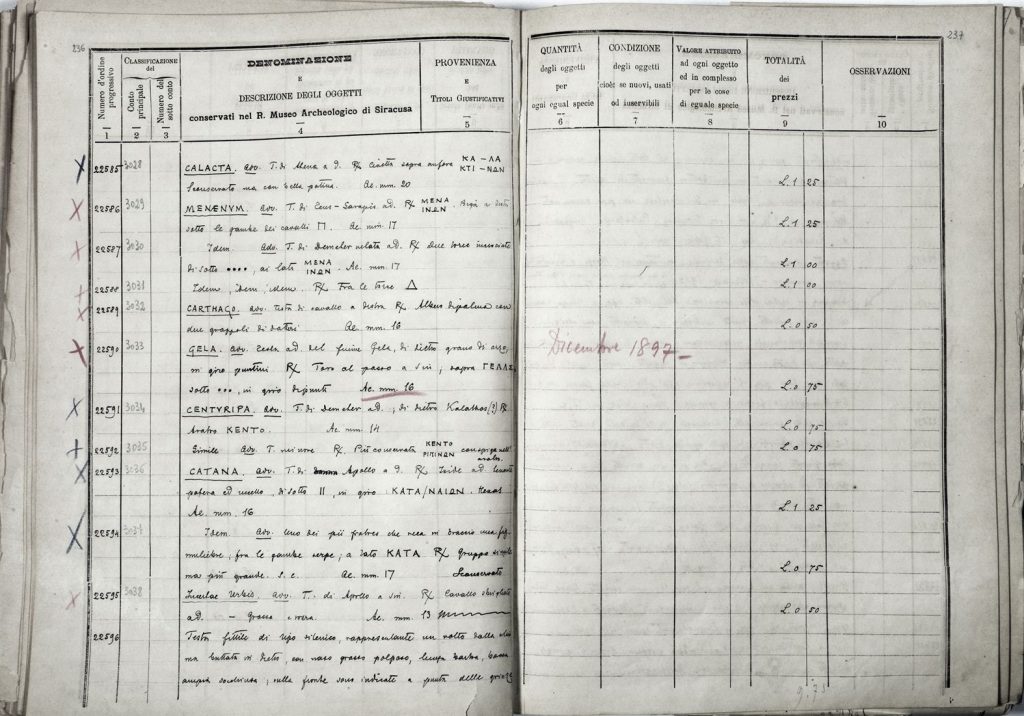 236
Numero d'ordine progressivo
CLASSIFICAZIONE del
Conto principale
Numero del sotto conto
DENOMINAZIONE
E
DESCRIZIONE DEGLI OGGETTI
conservati nel R. Museo Archeologico di Siracusa
PROVENIENZA
E
TITOLI GIUSTIFICATIVI
1 2 3 4 5
22585 3028 CALACTA. adv. T. di Atena a d. R/ Civetta sopra anfora ΚΑ – ΛΑ
ΚΤΙ – ΝΩΝ
Sconservato ma con bella patina. Ae. mm. 20
22586 3029 MENÆNVM. adv. T. di Serapis ad. R/ ΜΕΝΑ
ΙΝΩΝ.
sotto le gambe dei cavalli Π. Ae. mm. 17
22587 3030 Idem. adv. T. di Demeter velata ad. R/ Due torce incrociate
di sotto ••••, ai lati ΜΕΝΑ
ΙΝΩΝ. Ae. mm. 17
22588 3031 Idem, idem, idem. R/ Fra le torce Δ
22589 3032 CARTHAGO. adv. Testa di cavallo a destra R/ Albero di palma con
due grappoli di datteri Ae. mm. 16
22590 3033 GELA. adv. Testa ad. del fiume Gela, di dietro grano di orzo,
in giro puntini R/ Toro al passo a sin., sopra ΓΕΛΑΣ
sotto •••, in giro Ae. mm. 16
22591 3034 CENTVRIPA. adv. T. di Demeter ad.; di dietro Kalathos (?) R/
Aratro ΚΕΝΤΟ. Ae. mm. 14
22592 3035 Simile adv. T. R/. Più conservata ΚΕΝΤΟ
ΡΙΠΙΝΩΝ con spiga nell'
aratro.
22593 3036 CATANA. adv. T. di Apollo a d. R/ Iside ad.
ed uccello, di sotto II, in giro ΚΑΤΑ/ΝΑΙΩΝ.
Ae. mm. 16
22594 3037 Idem. adv. Uno dei pii fratres che reca in braccio una fig.
muliebre, fra le gambe serpe; a lato ΚΑΤΑ R/ Gruppo simile
ma più grande. s. c. Ae. mm. 17 Sconservato
22595 3038 adv. T. di Apollo a sin. R/ Cavallo
ad. – Ae. mm. 13
22596 Testa fittile di tipo silenico, rappresentante un volto dalla
ma buttata in dietro, con naso grosso polposo, lunga barba, bocca
ampia; sulla fronte sono indicate a punta delle
237
QUANTITÀ
degli oggetti
per
ogni egual specie
6
CONDIZIONE
degli oggetti
cioè: se nuovi, usati
od inservibili
7
VALORE ATTRIBUITO
ad ogni oggetto
ed in complesso
per le cose
di eguale specie
8
TOTALITÀ
dei
prezzi
9
OSSERVAZIONI
10
L. 1 25
L. 1 25
L. 1 00
L. 1 00
L. 0 50
Dicembre 1897 –
L. 0 75
L. 0 75
L. 0 75
L. 1 25
L. 0 75
L. 0 50
9.75